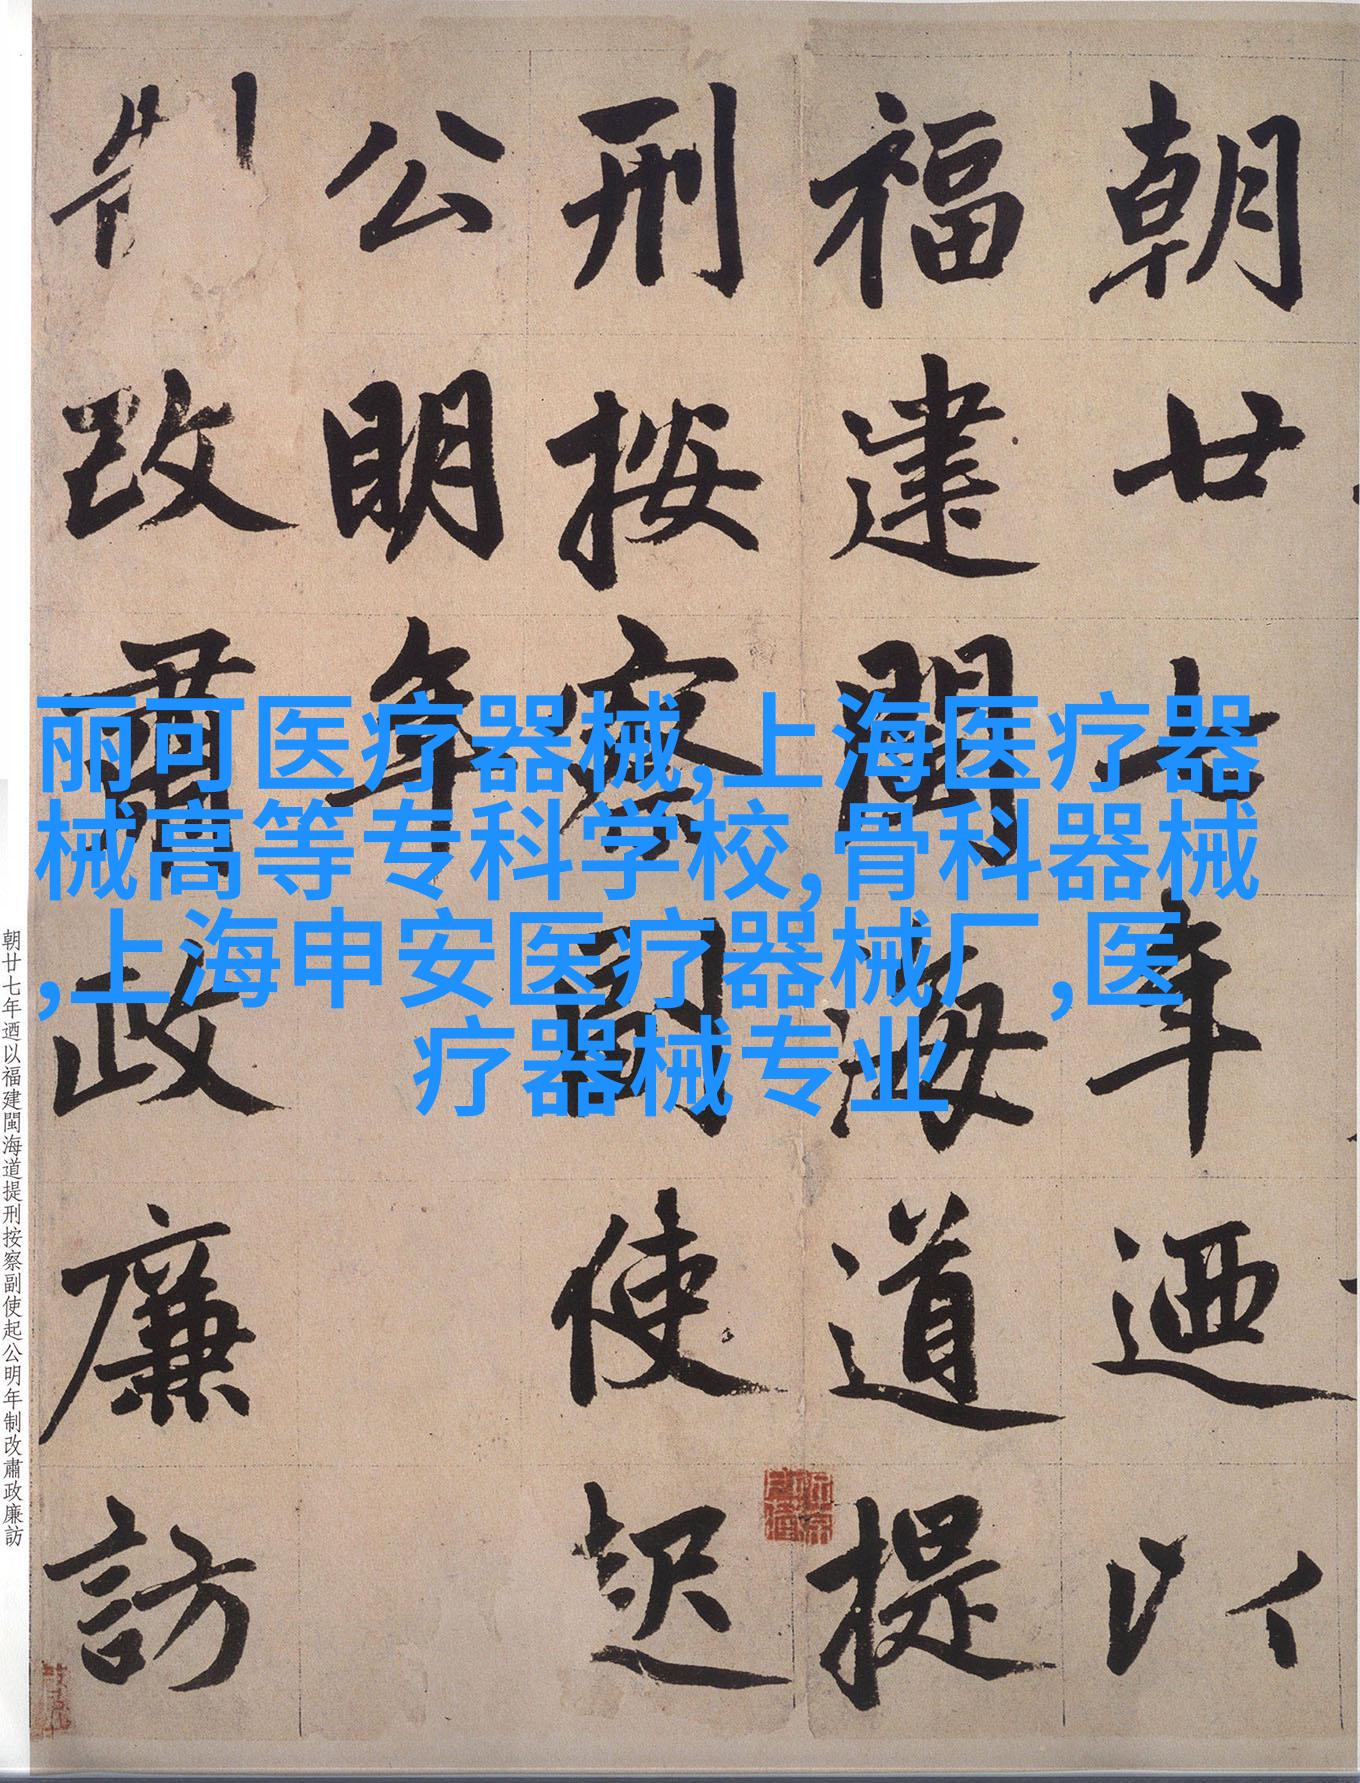 朝廿七年迺以
福建閩海道提
刑按察副使起
公明年
制改肅政廉訪
丽可医疗器械,上海医疗器
械高等专科学校,骨科器械
,上海申安医疗器械厂,医
疗器械专业
朝廿七年迺以福建閩海道提刑按察副使起公明年制改肅政廉訪